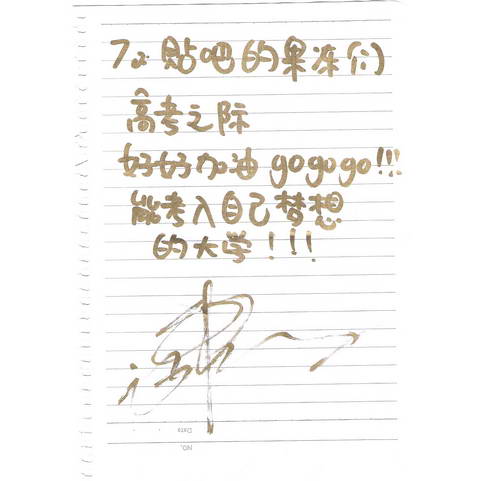 7a 貼吧的果冻们
高考之际
好好加油 gogogo!!!
能考入自己梦想
的大学!!!
Date
NO.